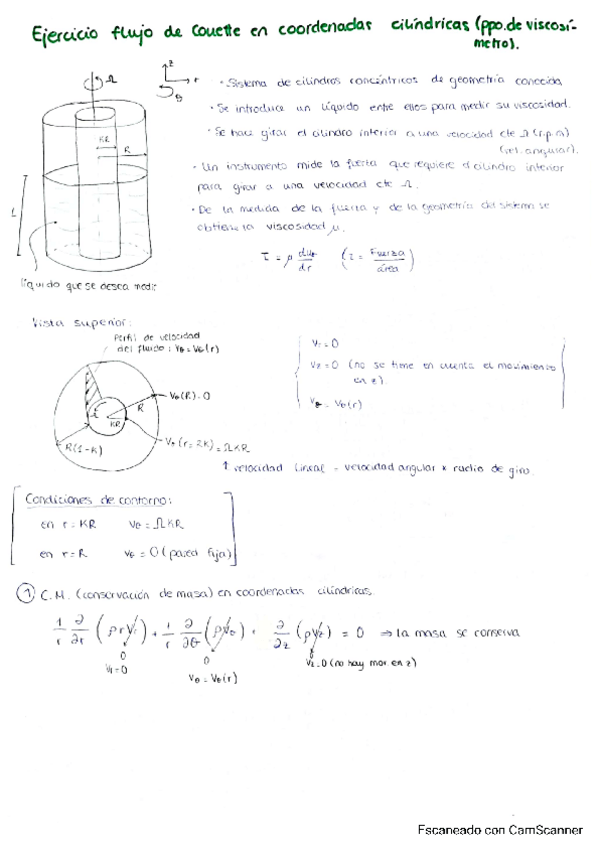 Ejercicio flujo de Couette en coordenadas cilíndricas (ppo. de viscosí-
metro).
Ω
z
r
θ
KR
R
L
líquido que se desea medir
· Sistema de cilindros concéntricos de geometría conocida
· Se introduce un líquido entre ellos para medir su viscosidad.
· Se hace girar el cilindro interior a una velocidad cte Ω (r.p.m)
(vel. angular).
· Un instrumento mide la fuerza que requiere el cilindro interior
para girar a una velocidad cte Ω.
· De la medida de la fuerza y de la geometría del sistema se
obtiene la viscosidad μ.
τ = μ dvθ/dr (τ = Fuerza/área)
Vista superior:
Perfil de velocidad
del fluido: vθ = vθ(r)
vθ(R) = 0
R
KR
R(1-K)
vθ(r=RK) = ΩKR
vr = 0
vz = 0 (no se tiene en cuenta el movimiento
en z).
vθ = vθ(r)
↑ velocidad lineal = velocidad angular x radio de giro.
Condiciones de contorno:
en r = KR vθ = ΩKR
en r = R vθ = 0 (pared fija)
① C.M. (conservación de masa) en coordenadas cilíndricas
1/r ∂/∂r (ρrvr) + 1/r ∂/∂θ (ρvθ) + ∂/∂z (ρvz) = 0 ⇒ la masa se conserva
0
vr = 0
0
vθ = vθ(r)
0
vz = 0 (no hay mov. en z)
Escaneado con CamScanner